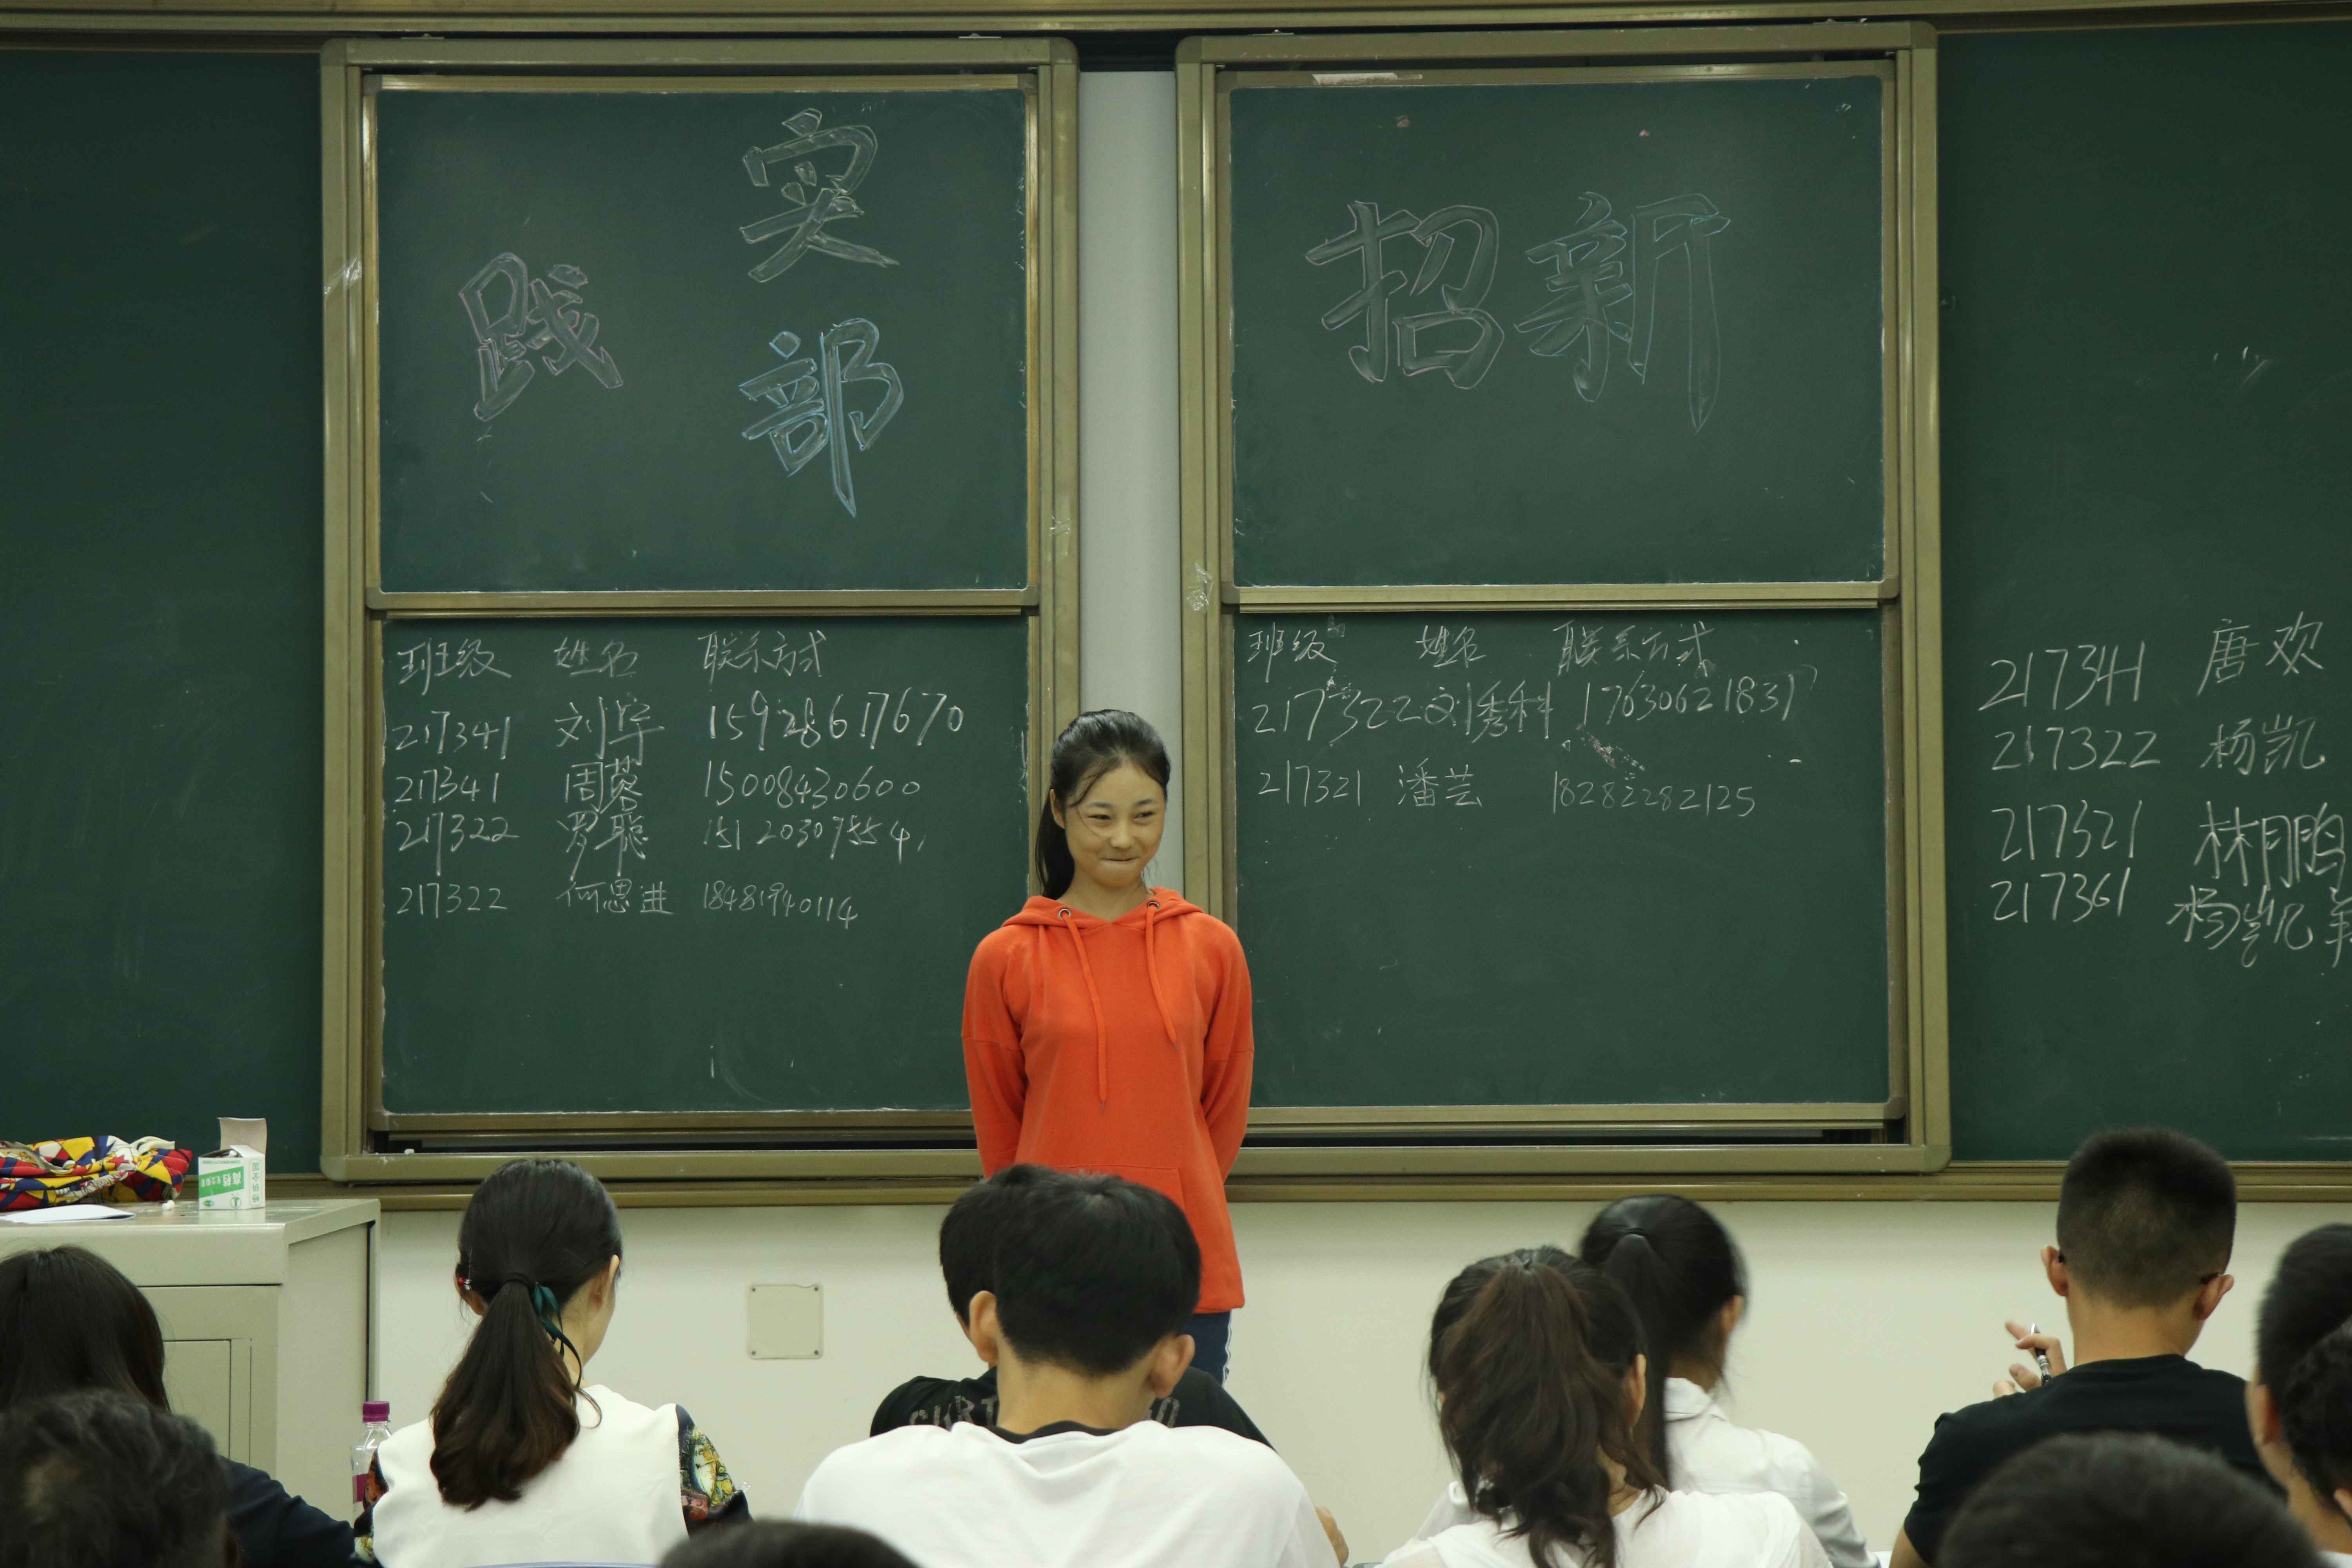 实
践
部
招新
班级 姓名 联系方式
217341 刘宇 15928617670
217341 周蓉 15008430600
217322 罗聪 15120307554
217322 何思进 18481940114
班级 姓名 联系方式
217322 刘秀科 17630621837
217321 潘芸 18282282125
217341 唐欢
217322 杨凯
217321 林鹏
217361 杨凯